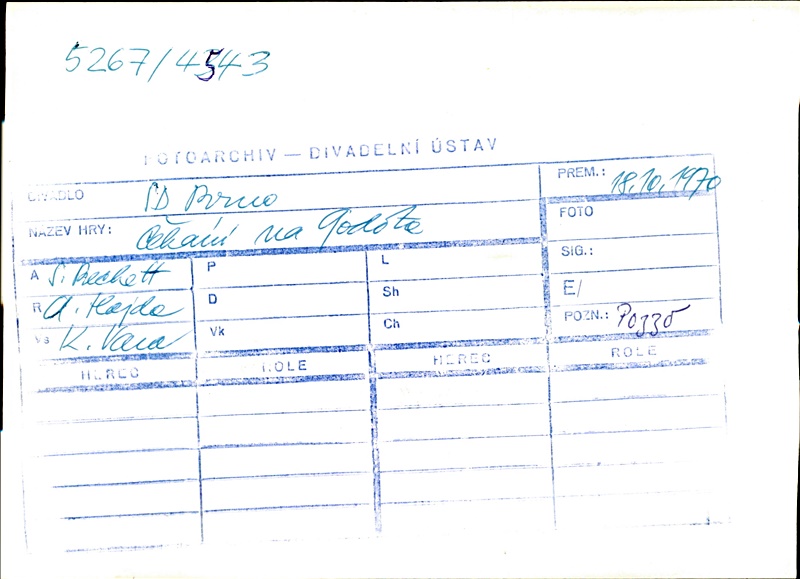 5267/4543
FOTOARCHIV — DIVADELNÍ ÚSTAV
DIVADLO SD Brno
PREM.: 18.10.1970
NÁZEV HRY: Čekání na Godota
FOTO
SIG.:
E/
POZN.: Pozzo
A S. Beckett
P
L
R A. Hajda
D
Sh
Vs K. Vaca
Vk
Ch
HEREC ROLE HEREC ROLE